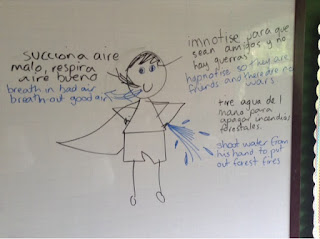 succiona aire
malo, respira
aire bueno
breath in bad air
breath out good air
imnotise para que
sean amigos y no
hay guerras
hypnotise so they are
friends and there are no
wars
tire agua de l
mano para
apagar incendios
forestales.
shoot water from
his hand to put
out forest fires